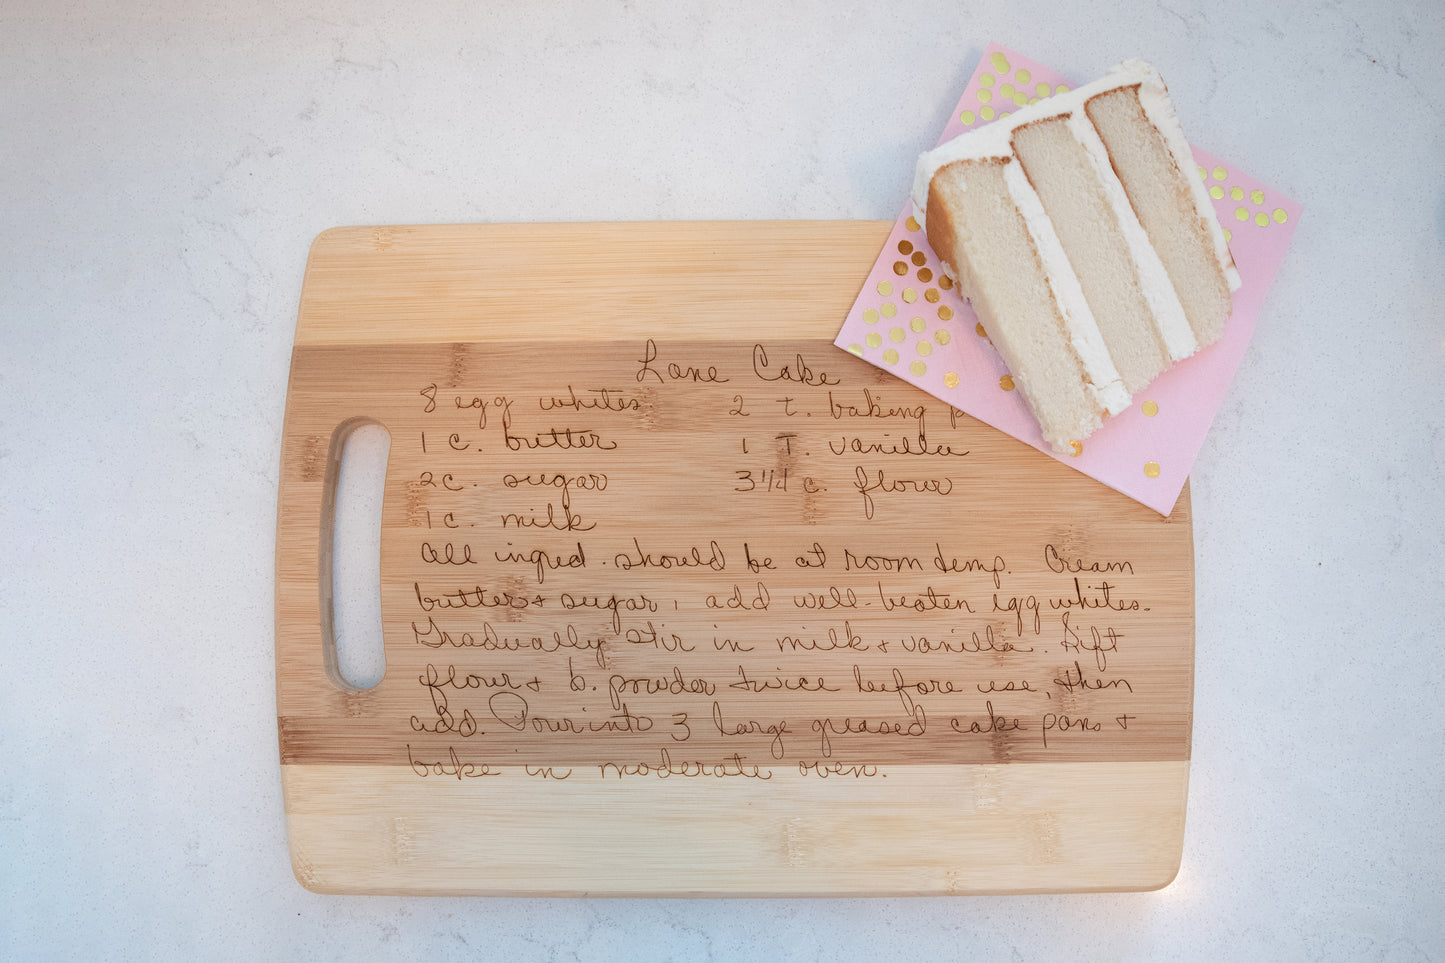 Lane Cake
8 egg whites 2 t. baking p
1 c. butter 1 T. vanilla
2 c. sugar 3 1/4 c. flour
1 c. milk
All ingred. should be at room temp. Cream
butter + sugar, add well-beaten egg whites.
Gradually stir in milk + vanilla. Sift
flour + b. powder twice before use, then
add. Pour into 3 large greased cake pans +
bake in moderate oven.